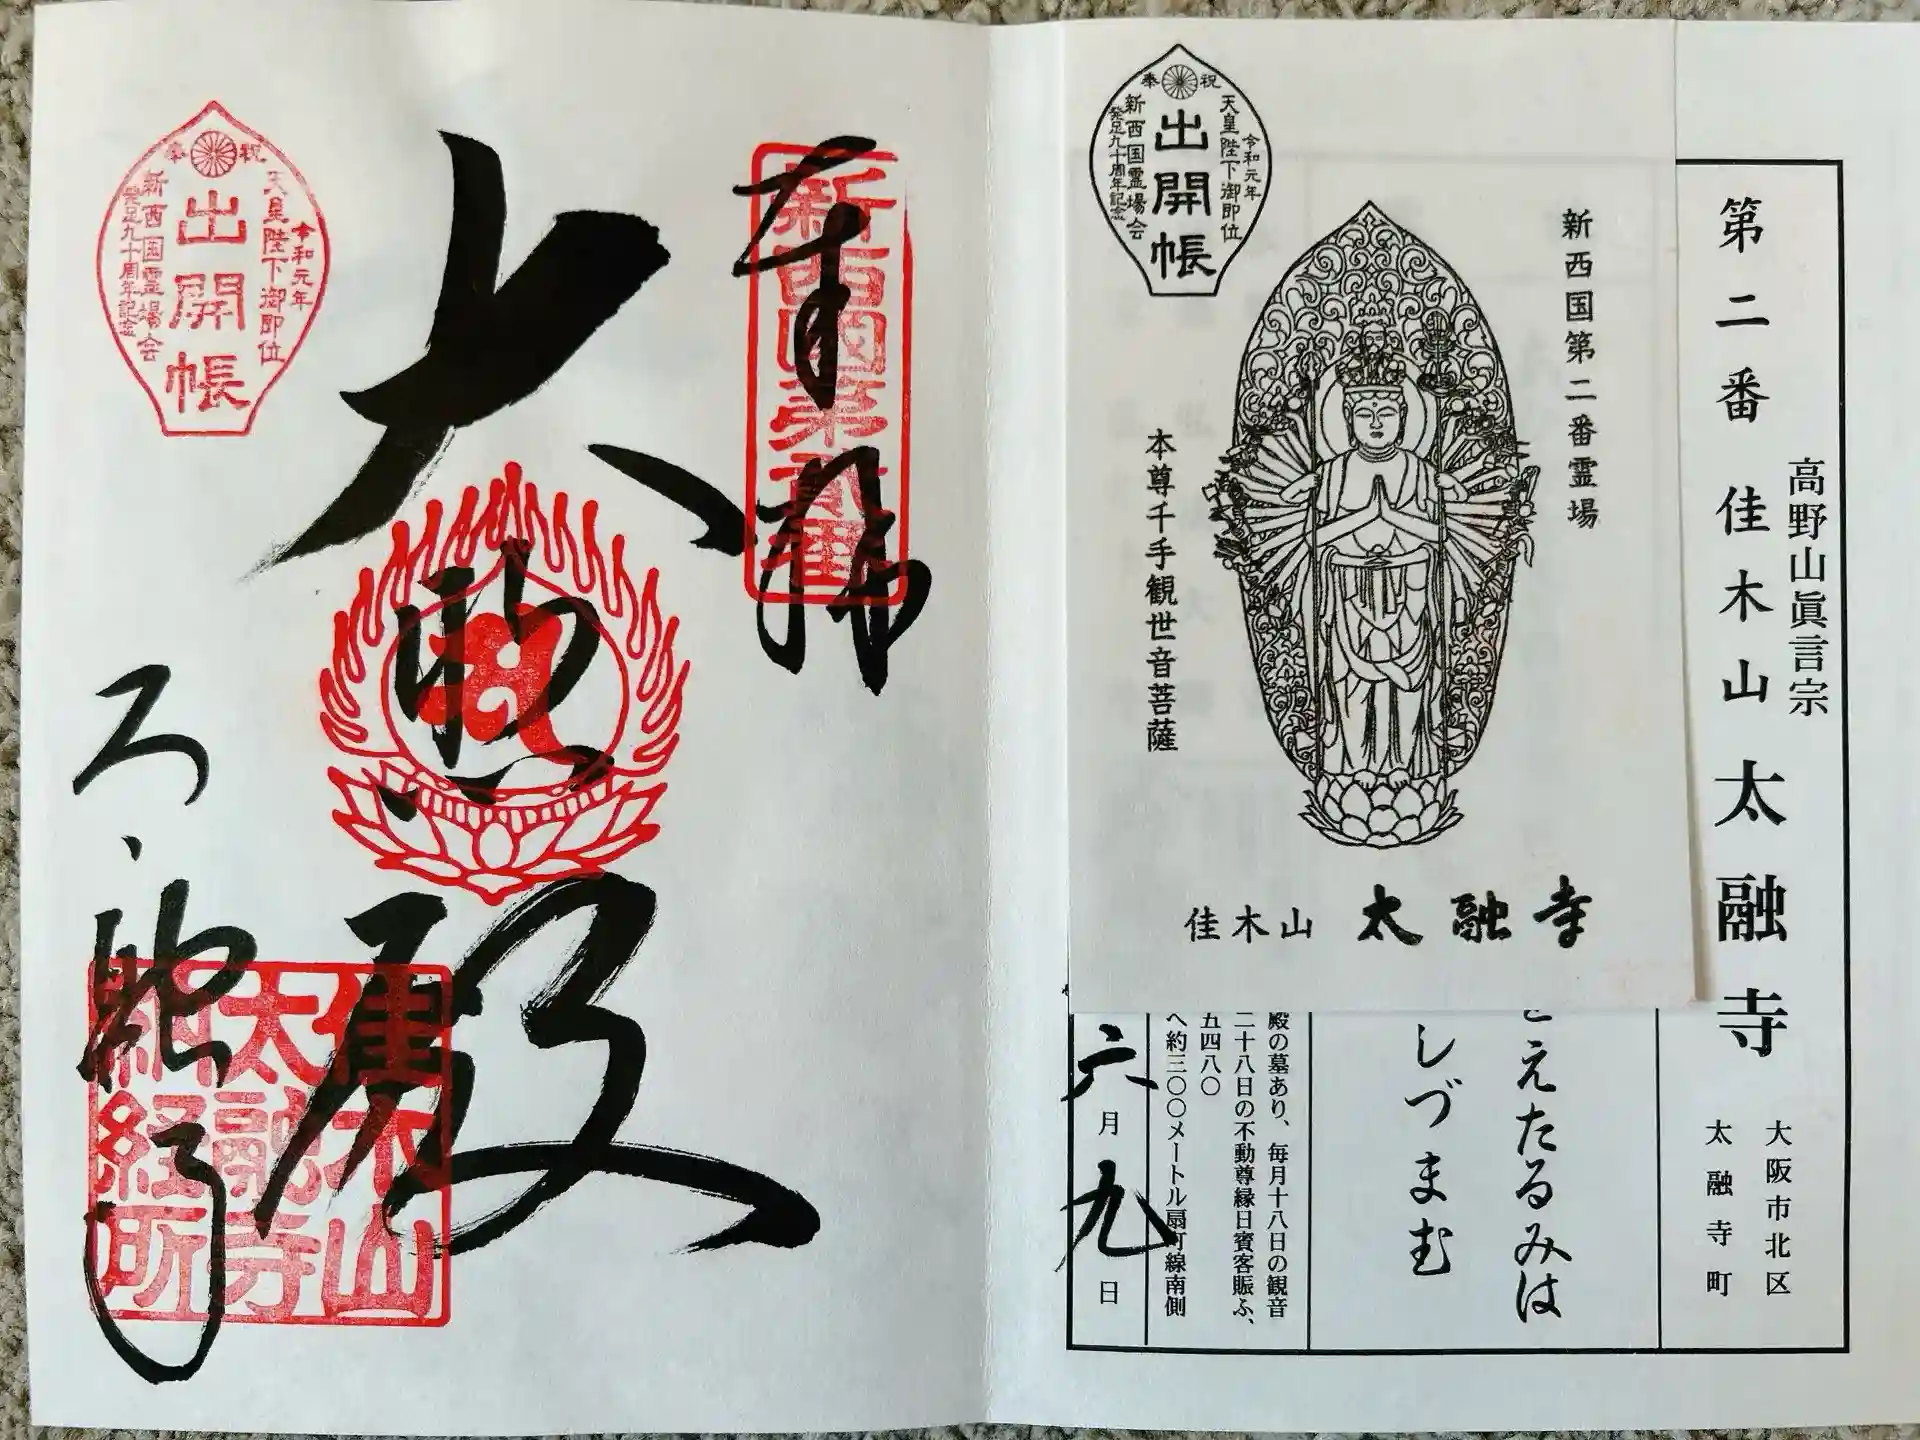 第二番 佳木山 太融寺
高野山眞言宗
大阪市北区
太融寺町
奉祝
令和元年
天皇陛下御即位
出開帳
新西国霊場会
発足九十周年記念
新西国第二番霊場
本尊千手観世音菩薩
佳木山 太融寺
えたるみは
しづまむ
殿の墓あり、毎月十八日の観音
二十八日の不動尊縁日賓客賑ふ、
五四八〇
へ約三〇〇メートル扇町線南側
六月九日
奉拝
新西國第貳番
大悲殿
太融寺
佳木山
太融寺
納経所
奉祝
令和元年
天皇陛下御即位
出開帳
新西国霊場会
発足九十周年記念